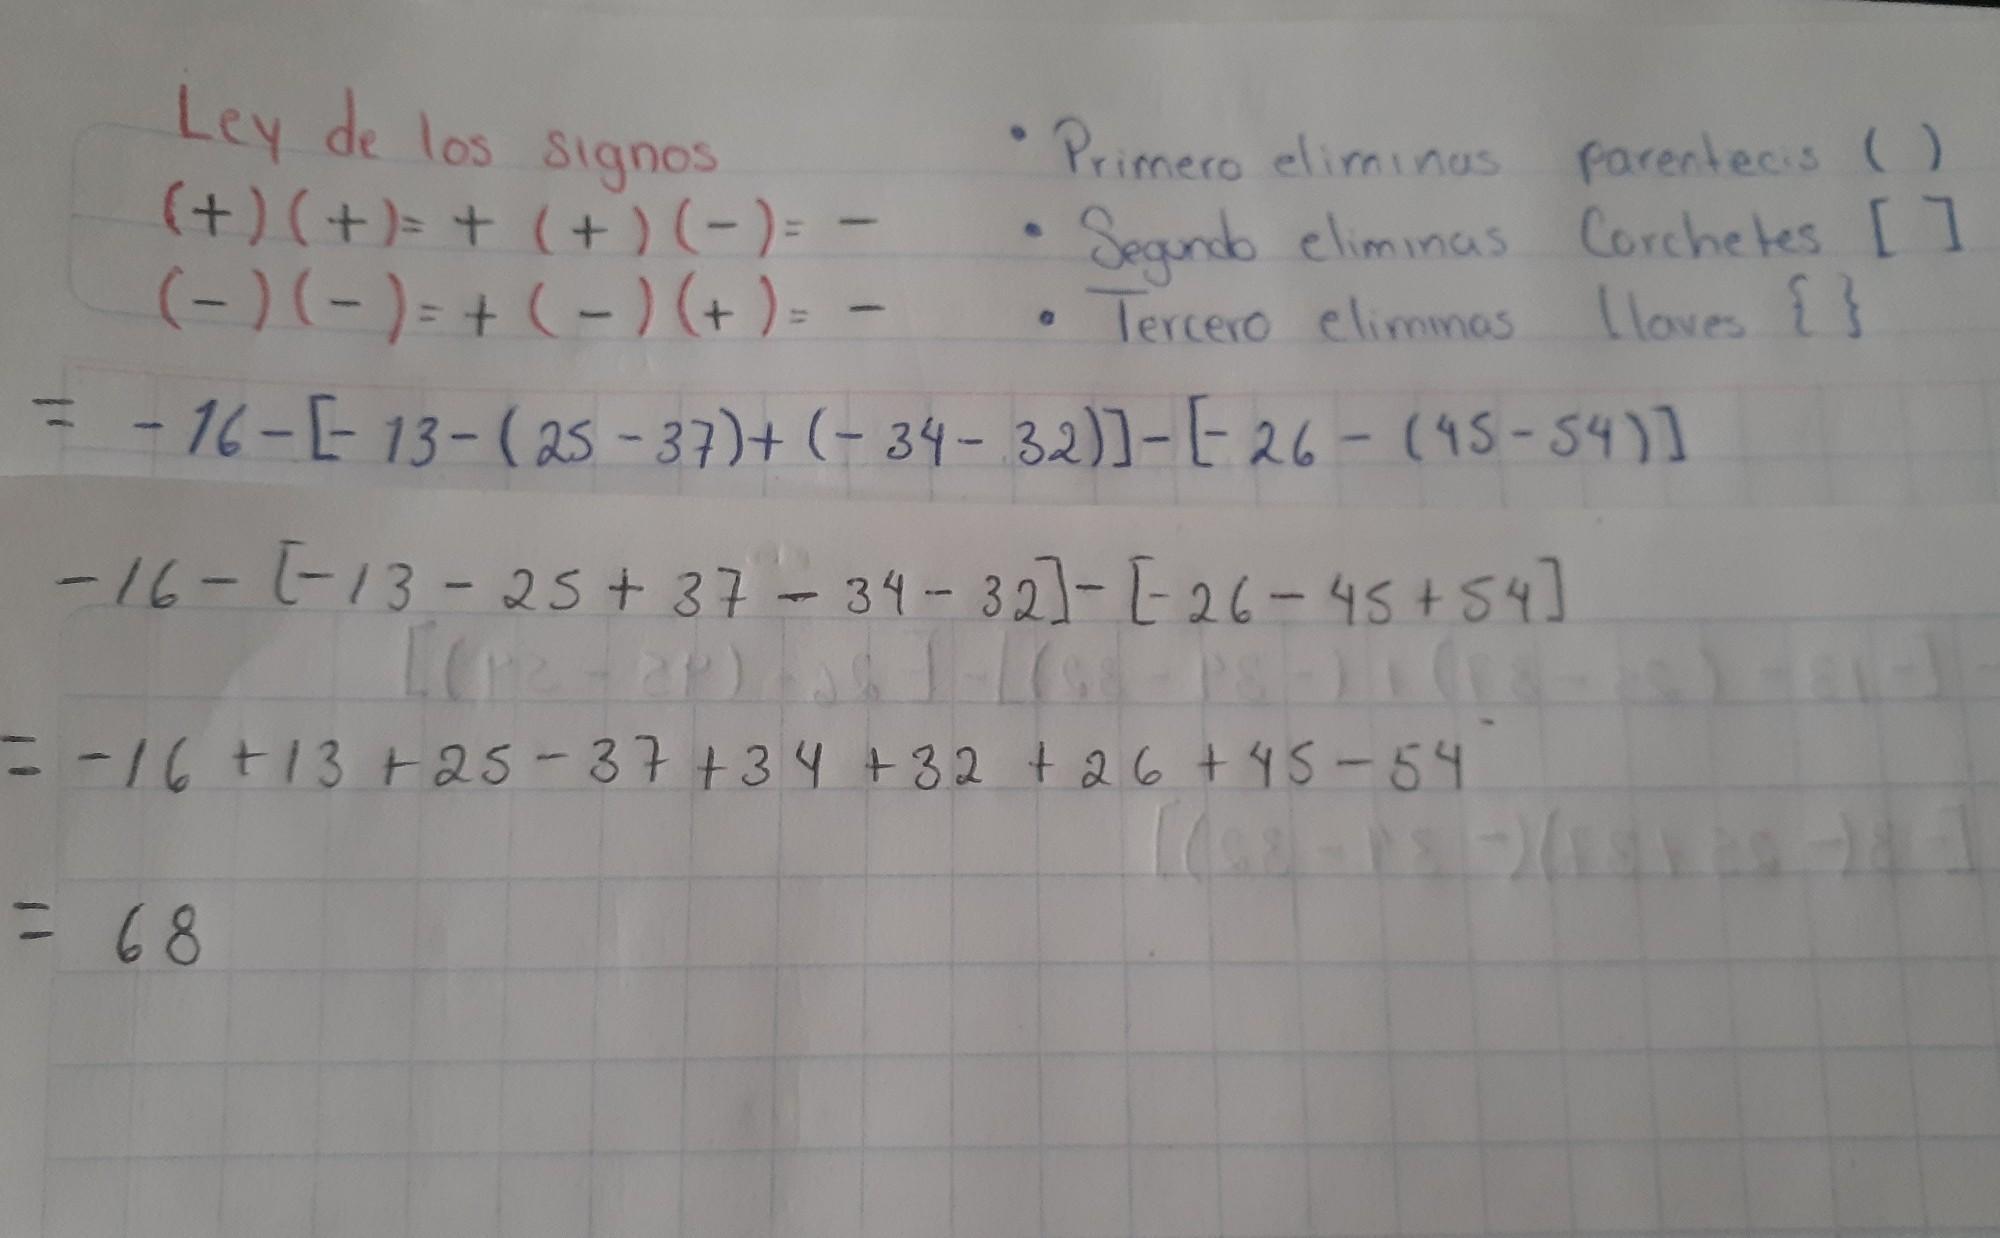 Ley de los signos
(+)(+)= + (+)(-)= -
(-)(-)= + (-)(+)= -
• Primero eliminas parentecis ( )
• Segundo eliminas Corchetes [ ]
• Tercero eliminas llaves { }
= -16-[-13-(25-37)+(-34-32)]-[-26-(45-54)]
-16-[-13-25+37-34-32]-[-26-45+54]
= -16+13+25-37+34+32+26+45-54
= 68